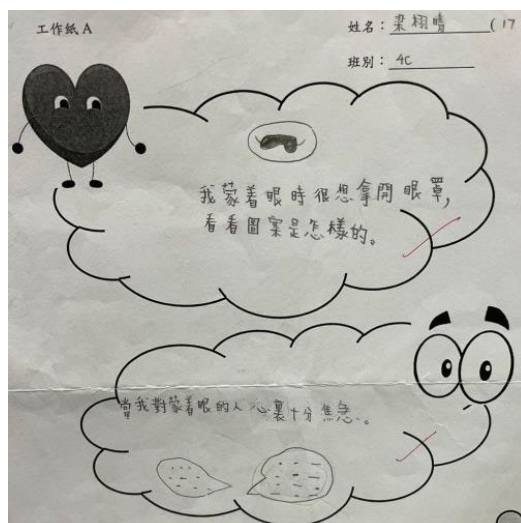 工作紙 A
姓名：梁栩晴 (17
班別：4C
我蒙着眼時很想拿開眼罩，
看看圖案是怎樣的。
當我對蒙着眼的人心裏十分焦急。